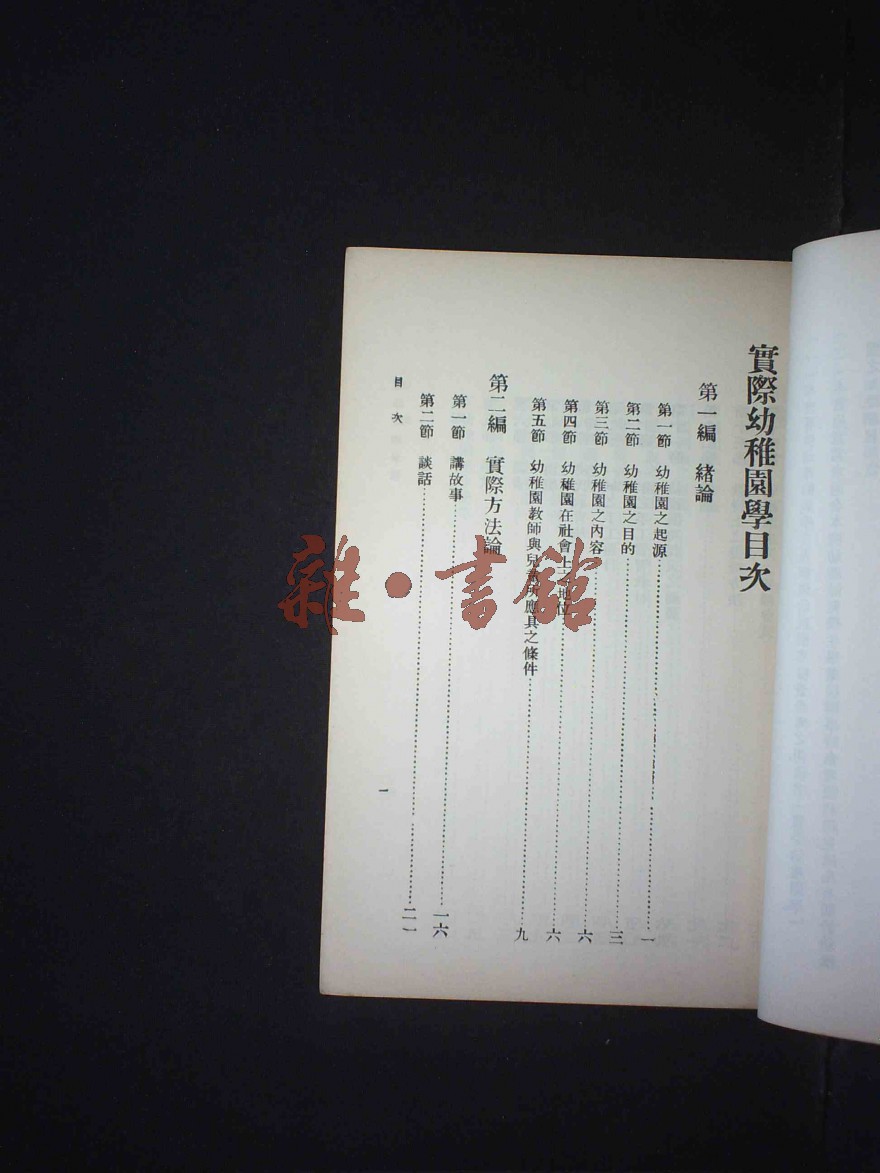 實際幼稚園學目次
第一編　緒論
第一節　幼稚園之起源……一
第二節　幼稚園之目的……三
第三節　幼稚園之內容……六
第四節　幼稚園在社會上之地位……六
第五節　幼稚園教師與兒童所應具之條件……九
第二編　實際方法論
第一節　講故事……一六
第二節　談話……二一
目次
一
雜·書館